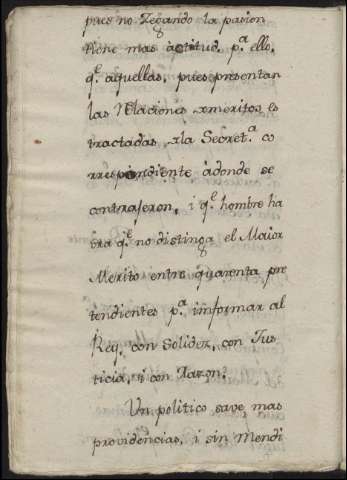 pues no Zegando la pasion
tiene mas actitud, p.ª ello,
q.ᵉ aquellas, pues presentan
las Relaciones, xmeritos es
tractadas, xla Secret.ª co
rrespondiente àdonde se
contrageron, i q.ᵉ hombre ha
bra q.ᵉ no distinga el Maior
Merito entre quarenta pre
tendientes p.ª informar al
Rey, con Solidez, con Jus
ticia, i con Razon;
Un politico save mas
providencias, i sin Mendi